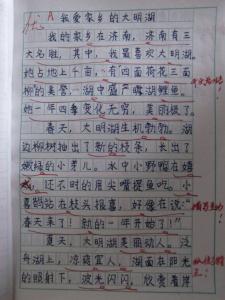 优 A 我爱家乡的大明湖
我的家乡在济南，济南有三
大名胜，其中，我最喜欢大明湖。
她占地上千亩，有四面荷花三面
柳的美誉，湖中盛产鲤鱼。
她一年四季变化无穷，美丽极了。
春天，大明湖生机勃勃。湖
边柳树抽出了新的枝条，长出了
嫩绿的小芽儿。水中小野鸭在嬉
戏，还不时的用尖嘴捉鱼吃。小
喜鹊站在枝头报喜，好像在说：“
春天来了！新的一年开始了！”
夏天，大明湖美丽动人。泛
舟湖上，凉爽宜人。湖面在阳光
的照射下，波光闪闪。欣赏着岸